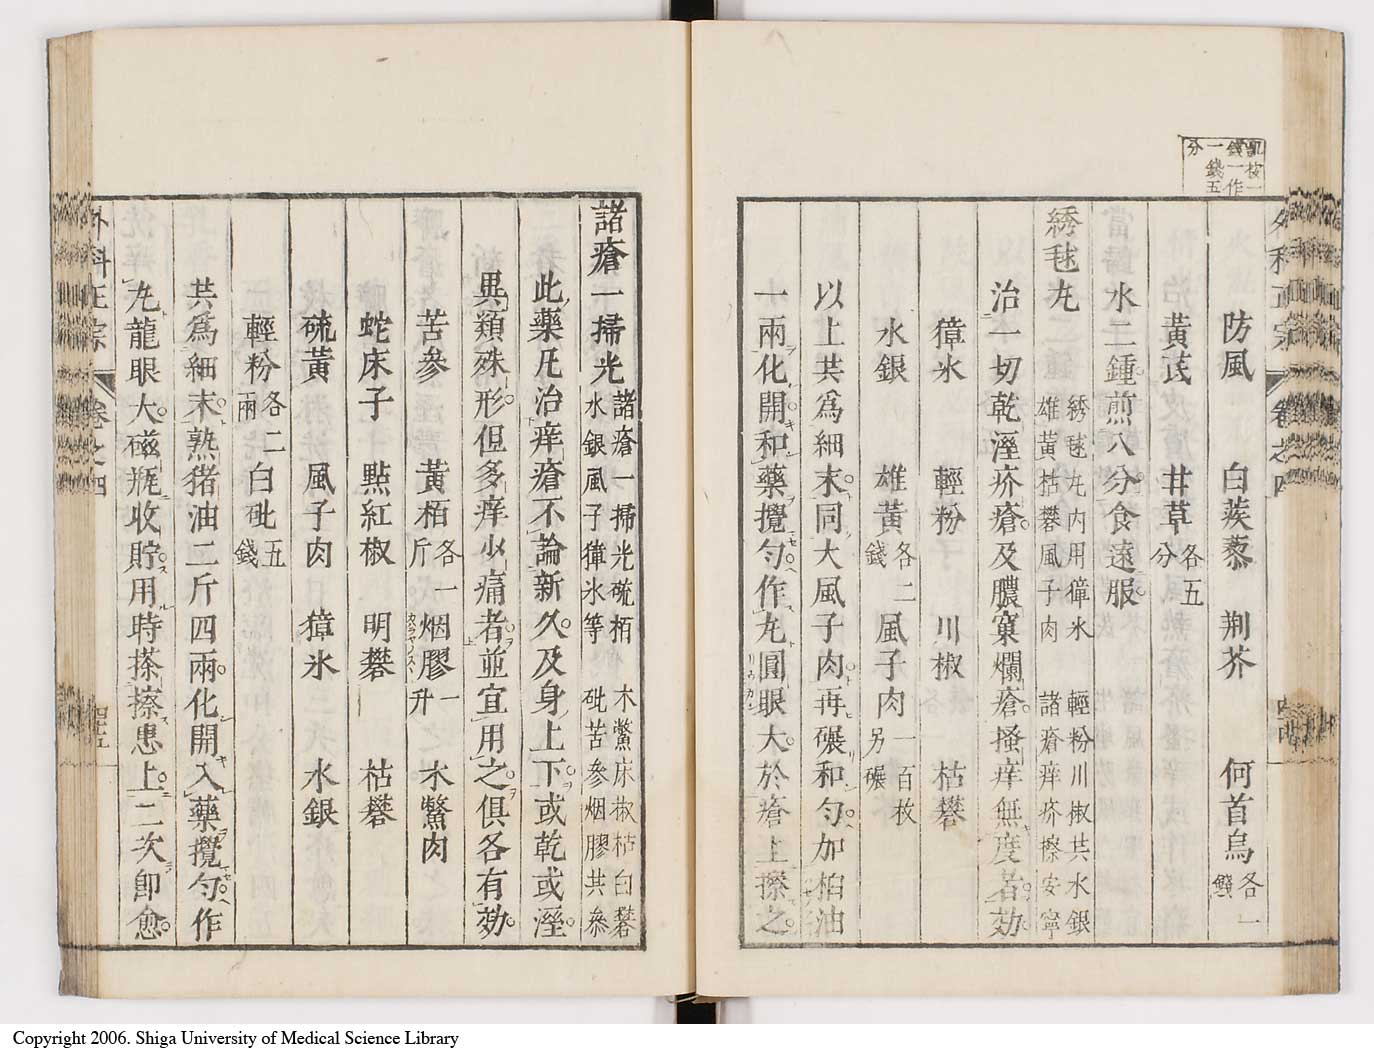 外科正宗 卷之四
一作
一錢五
分
防風 白蒺藜 荆芥 何首烏各一錢
黃芪 甘草各五分
水二鍾煎八分食遠服
綉毬丸 綉毬丸內用獐氷 輕粉川椒共水銀
雄黃枯礬風子肉 諸瘡痒疥擦安寧
治一切乾溼疥瘡及膿窠爛瘡搔痒無度者効
獐氷 輕粉 川椒 枯礬
水銀 雄黃各二錢 風子肉一百枚另碾
以上共爲細末同大風子肉再碾和勻加柏油
一兩化開和藥攪勻作丸圓眼大於瘡上擦之
リウガン
諸瘡一掃光 諸瘡一掃光硫栢 木鱉床椒枯白礬
水銀風子獐氷等 砒苦參烟膠共叅
此藥凡治痒瘡不論新久及身上下或乾或溼
異類殊形但多痒少痛者並宜用之俱各有効
苦參 黃栢各一斤 烟膠一升 木鱉肉
蛇床子 點紅椒 明礬 枯礬
硫黃 風子肉 獐氷 水銀
輕粉各二兩 白砒五錢
共爲細末熟猪油二斤四兩化開入藥攪勻作
丸龍眼大磁瓶收貯用時搽擦患上二次卽愈
外科正宗 卷之四
四十五
Copyright 2006. Shiga University of Medical Science Library